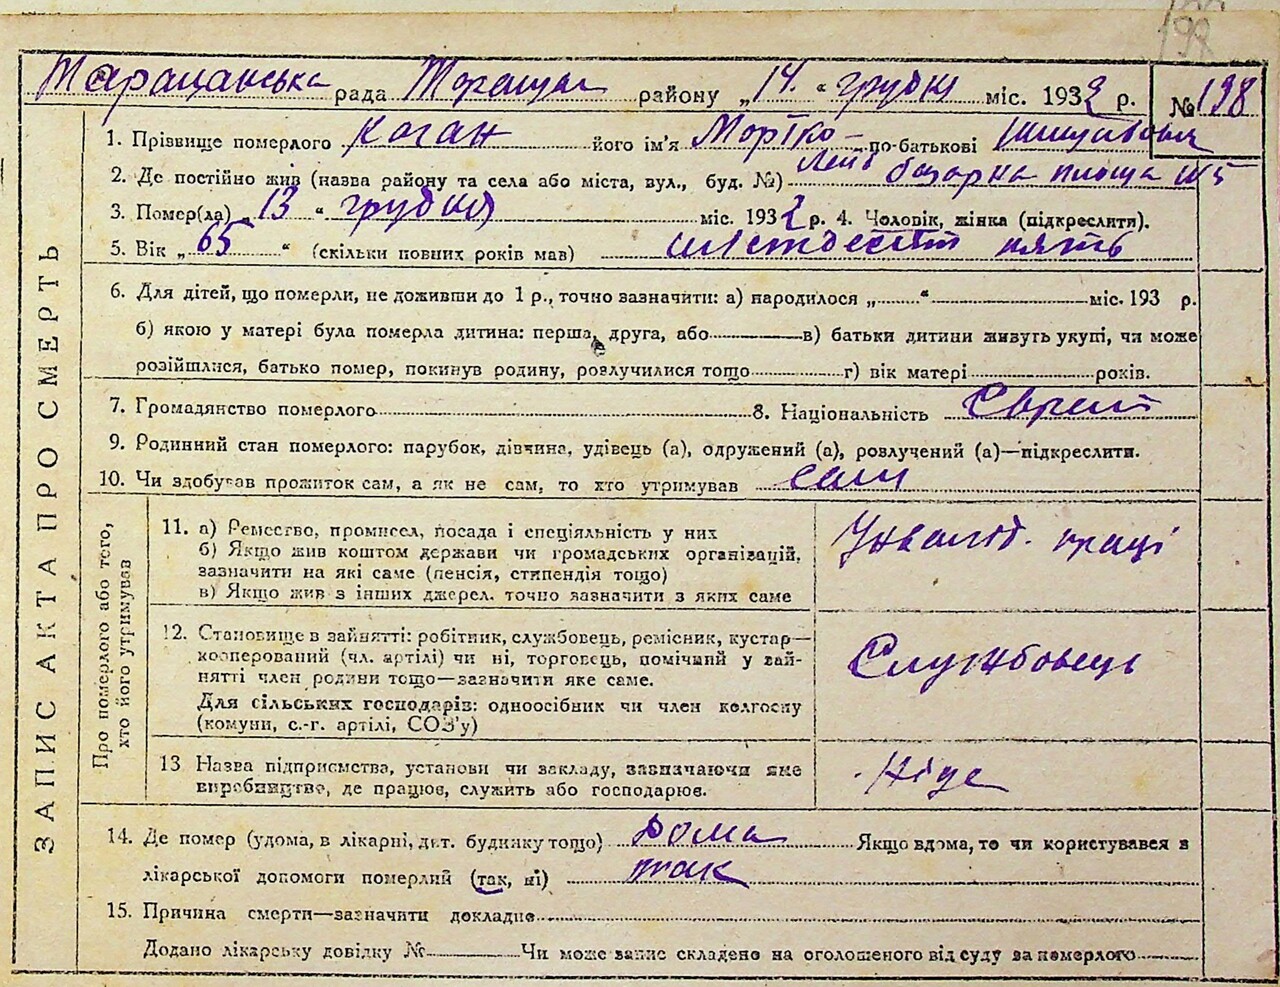 198
Таращанська рада Тараща району „14.“ грудня міс. 1932 р. № 198
1. Прізвище померлого Коган його ім'я Мортко по-батькові
2. Де постійно жив (назва району та села або міста, вул., буд. №) базарна площа №5
3. Помер(ла) „13“ грудня міс. 1932 р. 4. Чоловік, жінка (підкреслити).
5. Вік „65“ (скільки повних років мав) шістдесят пять
6. Для дітей, що померли, не доживши до 1 р., точно зазначити: а) народилося „ “ міс. 193 р.
б) якою у матері була померла дитина: перша, друга, або в) батьки дитини живуть укупі, чи може
розійшлися, батько помер, покинув родину, розлучилися тощо г) вік матері років.
7. Громадянство померлого 8. Національність Єврей
9. Родинний стан померлого: парубок, дівчина, удівець (а), одружений (а), розлучений (а)—підкреслити.
10. Чи здобував прожиток сам, а як не сам, то хто утримував сам
ЗАПИС АКТА ПРО СМЕРТЬ
Про померлого або того, хто його утримував
11. а) Ремество, промисел, посада і спеціяльність у них
б) Якщо жив коштом держави чи громадських організацій,
зазначити на які саме (пенсія, стипендія тощо)
в) Якщо жив з інших джерел, точно зазначити з яких саме
Інвалід. праці
12. Становище в зайнятті: робітник, службовець, ремісник, кустар—
кооперований (чл. артілі) чи ні, торговець, помічний у зай-
нятті член родини тощо—зазначити яке саме.
Для сільських господарів: одноосібник чи член колгоспу
(комуни, с.-г. артілі, СОЗ'у)
Службовець
13 Назва підприємства, установи чи закладу, зазначаючи яке
виробництво, де працює, служить або господарює.
Ніде
14. Де помер (удома, в лікарні, дит. будинку тощо) Дома Якщо вдома, то чи користувався з
лікарської допомоги померлий (так, ні) так
15. Причина смерти—зазначити докладно
Додано лікарську довідку № Чи може запис складено на оголошеного від суду за померлого